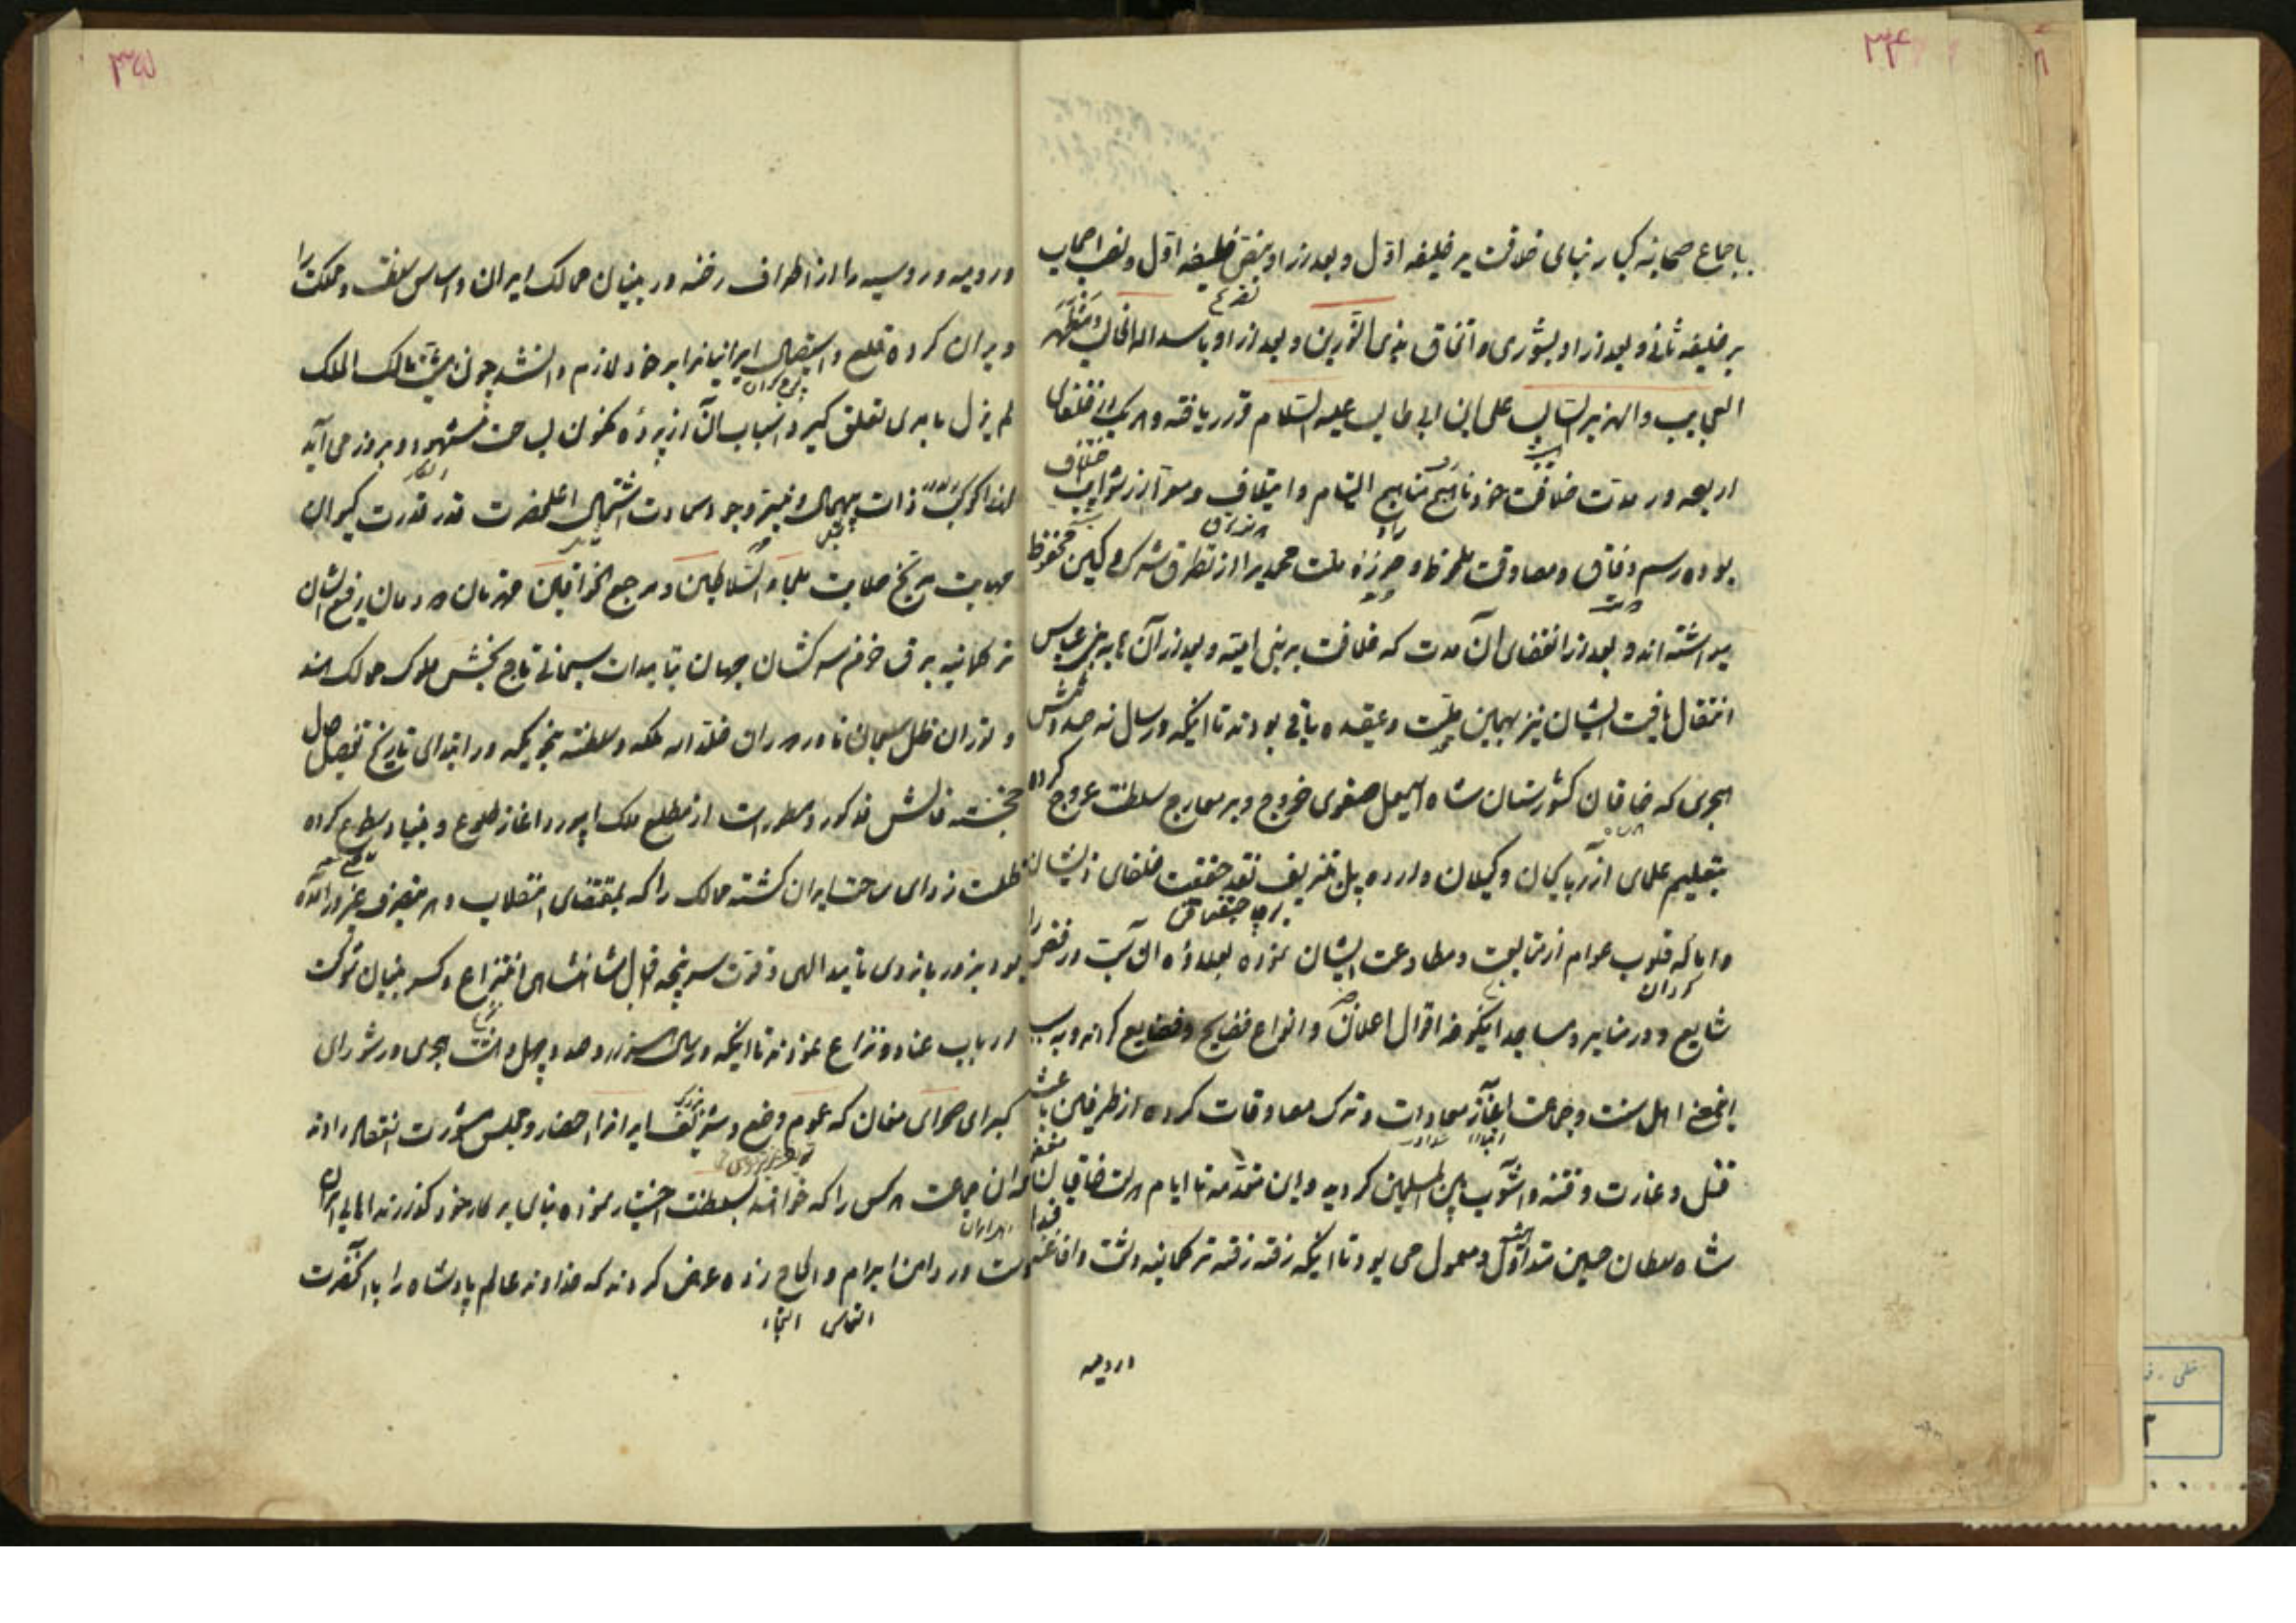 ۳۴۴
باجماع صحابه کبار بنای خلافت بر خلیفه اول و بعد از او بنص خلیفه اول و نصب اصحاب
بر خلیفه ثانی و بعد از او بشوری و اتفاق بذی النورین و بعد از او باسد الله الغالب مظهر
العجایب والهزبر السالب علی ابن ابی طالب علیه السلام قرار یافته و هر یک از خلفای
اربعه در مدت خلافت خود ناهج مناهج التیام و ایتلاف و معرا از شوایب اختلاف
بوده رسم وفاق و مصادقت ملحوظ و حوزه ملت محمدیه را از تطرق شرک و کین محفوظ
میداشته اند و بعد از انقضای آن مدت که خلافت بر بنی امیه و بعد از آن به بنی عباس
انتقال یافت ایشان نیز بهمین ملت و عقیده باقی بودند تا اینکه در سال نه صد و شش
هجری که خاقان کشورستان شاه اسمعیل صفوی خروج و بر معارج سلطنت عروج کرده
بتعلیم علمای آذربایجان و گیلان و اردبیل تزییف نقد حقیقت خلفای ذیشان
و ابا که قلوب عوام از متابعت و مطاوعت ایشان نموده بعلاوه آن سب و رفض را
شایع و در منابر و مساجد اینگونه اقوال اعلان و انواع فضایح و قضایع کردند و به سب
اینمعنی اهل سنت و جماعت آغاز معادات و ترک مصادقات کرده از طرفین باعث
قتل و غارت و فتنه و آشوب بین المسلمین گردید و این مقدمه تا ایام دولت خاقان مغفور
شاه سلطان حسین متداول و معمول می بود تا اینکه رفته رفته ترکمانیه دشت و افاغنه قندهار
ارومیه
۳۴۵
و رومیه و روسیه را از اطراف رخنه در بنیان ممالک ایران و اساس سلف و مملکت را
ویران کرده قلع و استیصال ایرانیانرا بر خود لازم دانستند چون مشیت مالک الملک
لم یزل بامری تعلق گیرد اسباب آن از پرده مکنون بساحت شهود و بروز می آید
لهذا کوکب ذات بیهمال و نیر وجود سعادت اشتمال اعلیحضرت قدر قدرت کیوان
مهابت مریخ صلابت ملجاء السلاطین و مرجع الخواقین قهرمان دودمان رفیع الشان
ترکمانیه برق خرمن سرکشان جهان بتاییدات سبحانی تاج بخش ملوک ممالک هند
و توران ظل سبحان نادر دوران خلد الله ملکه و سلطنته بنحویکه در ابتدای تاریخ تفصیل حال
خجسته فالش مذکور و مسطور است از مطلع ملک ابیورد آغاز طلوع و بنیاد سطوع کرده
ظلمت زدای ساحت ایران گشته ممالک را که بمقتضای انقلاب دهر بتصرف غیر در آمده
بود بزور بازوی تایید الهی و قوت سرپنجه اقبال شاهنشاهی انتزاع و کسر بنیان شوکت
ارباب عناد و نزاع نمودند تا اینکه در سال هزار و صد و چهل و هشت هجری در شورای
کبرای صحرای مغان که عموم وضیع و شریف ایران را احضار و مجلس مشورت انعقاد دادند
که آن جماعت هر کس را که خواهند بسلطنت اختیار نموده بنای بر کار خود گذارند اهالی ایران
دست در دامن ابرام و الحاح زده عرض کردند که خداوند عالم پادشاه را با آنحضرت
التماس التجاء